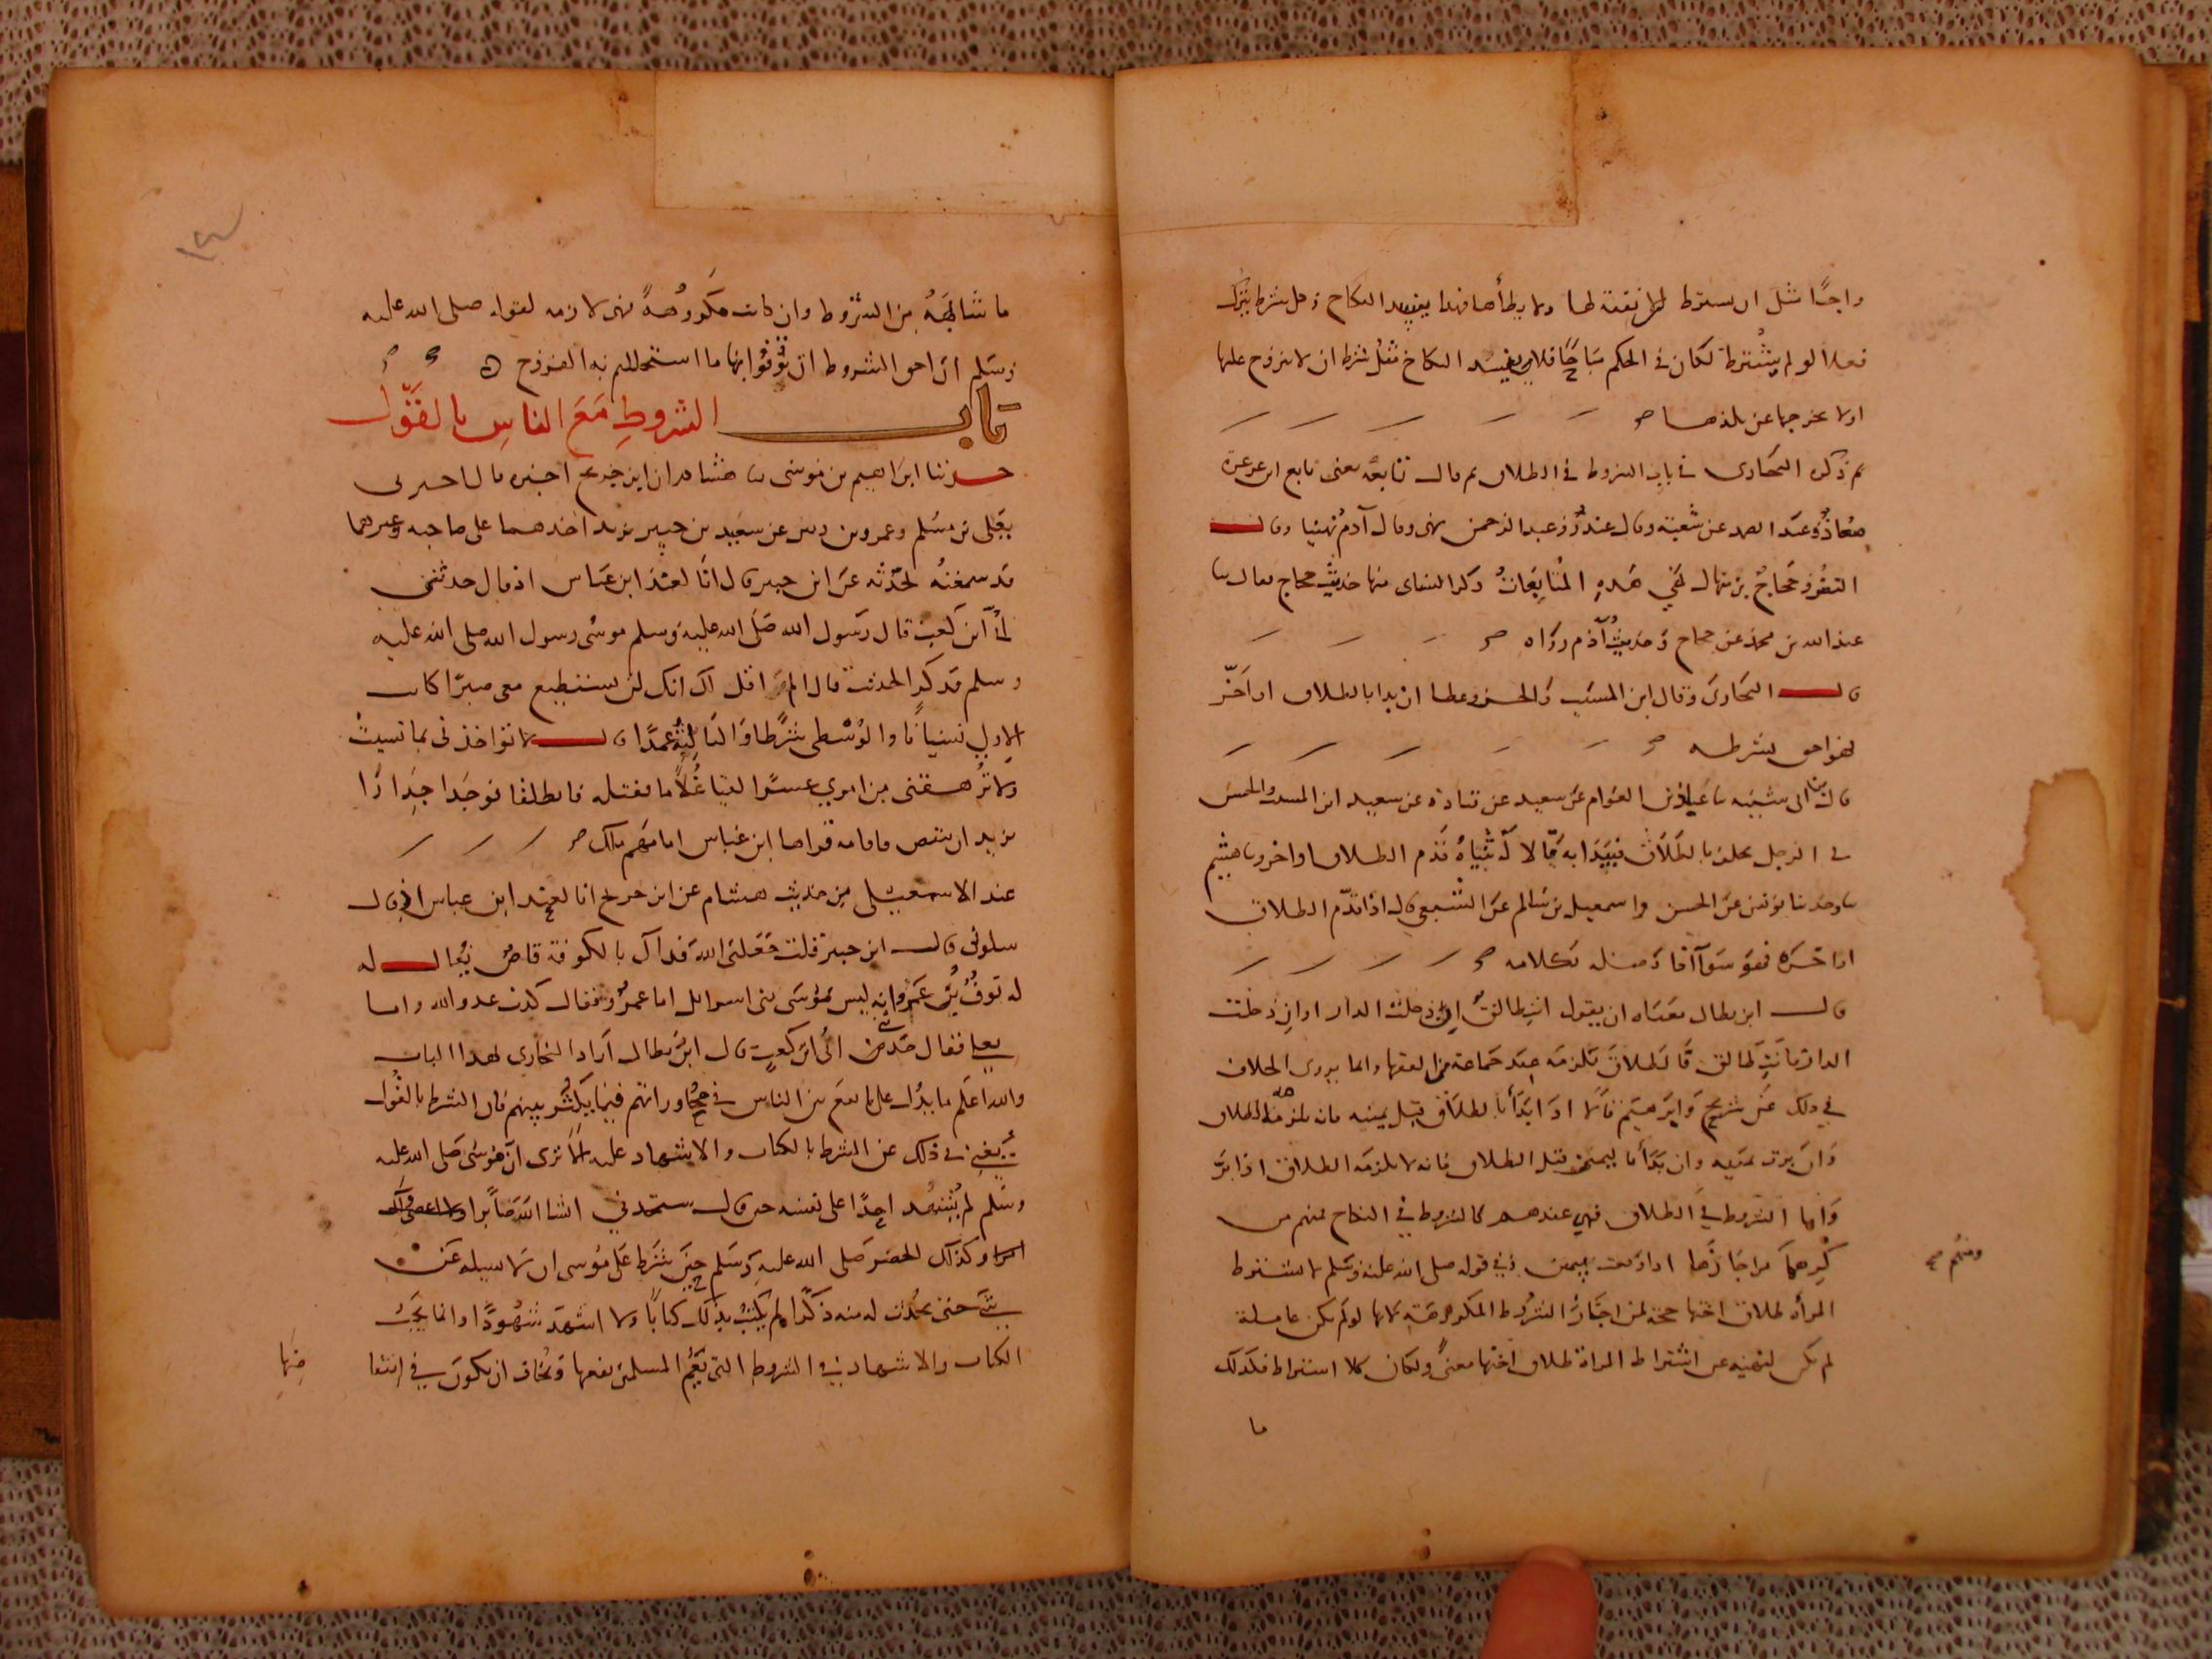 واجبًا مثل ان يشترط ان لا نفقة لها ولا يطأها فهذا يفسد النكاح وكل شرط بترك
فعل لو لم يشترط لكان في الحكم مباحًا فلا يفسد النكاح مثل شرط ان لا يتزوج عليها
او لا يخرجها عن بلدها
ثم ذكر البخاري في باب الشروط في الطلاق ثم قال تابعه يعني تابع ابن عرعرة
معاذ وعبد الصمد عن شعبة وقال غندر وعبد الرحمن نهى وقال آدم نهينا وقال
النضر وحجاج بن منهال نهى هذه المتابعات ذكر النسائي منها حديث حجاج فقال ثنا
عبد الله بن محمد عن حجاج وحديث آدم رواه
قال البخاري وقال ابن المسيب والحسن وعطا ان بدا بالطلاق او اخر
فهو احق بشرطه
قال ابن ابي شيبه ثنا عباد بن العوام عن سعيد عن قتادة عن سعيد ابن المسيب والحسن
في الرجل يحلف بالطلاق فيبدا به قالا له ثنياه قدم الطلاق او اخر وثنا هشيم
ثنا يونس عن الحسن واسمعيل بن سالم عن الشعبي قال اذا قدم الطلاق
او اخره فهو سواء اذا وصله بكلامه
قال ابن بطال معناه ان يقول انت طالق ان دخلت الدار او ان دخلت
الدار فانت طالق فالطلاق يلزمه عند جماعة من الفقها وانما يروى الخلاف
في ذلك عن شريح وابرهيم قالا اذا ابتدأ بالطلاق قبل يمينه فانه يلزمه الطلاق
وان بر في يمينه وان بدأ باليمين قبل الطلاق فانه لا يلزمه الطلاق اذا بر
واما الشروط في الطلاق فهي عندهم كالشروط في النكاح فمنهم من
كرهها من اجازها اذا وقعت بيمين وفي قوله صلى الله عليه وسلم لا تشترط
ومنهم
المرأة طلاق اختها حجة لمن اجاز الشروط المكروهة لانها لو لم تكن عاملة
لم يكن لنهيه عن اشتراط المراة طلاق اختها معنى ولكان كلا اشتراط فكذلك
ما
ما شابهه من الشروط وان كانت مكروهة فهي لازمه لقوله صلى الله عليه
وسلم ان احق الشروط ان توفوا بها ما استحللتم به الفروج
باب الشروط مع الناس بالقول
حدثنا ابراهيم بن موسى ثنا هشام ان ابن جريج اخبره قال اخبرني
يعلى بن مسلم وعمرو بن دينر عن سعيد بن جبير يزيد احدهما على صاحبه وغيرهما
قد سمعته يحدثه عن ابن جبير قال انا لعند ابن عباس اذ قال حدثني
ابي ابن كعب قال رسول الله صلى الله عليه وسلم موسى رسول الله صلى الله عليه
وسلم فذكر الحديث قال الم اقل لك انك لن تستطيع معي صبرًا كانت
الاولى نسيانا والوسطى شرطا والثالثة عمدًا قال لا تؤاخذني بما نسيت
ولا ترهقني من امري عسرًا لقيا غلامًا فقتله فانطلقا فوجدا جدارًا
يريد ان ينقض فاقامه قراها ابن عباس امامهم ملك
عند الاسمعيلي من حديث هشام عن ابن جريج انا لعند ابن عباس اذ قال
سلوني قال ابن جبير قلت جعلني الله فداك بالكوفة قاص يقال له
له نوف يزعم انه ليس بموسى بني اسرائل اما عمرو فقال كذب عدو الله واما
يعلى فقال حدثني ابي ابن كعب قال ابن بطال اراد البخاري بهذا الباب
والله اعلم ما يدل على ما يقع بين الناس في محاوراتهم فيما يكثر بينهم فان الشرط بالقول
يغني في ذلك عن الشرط بالكتاب والاشهاد عليه الا ترى ان موسى صلى الله عليه
وسلم لم يشهد احدًا على نفسه حين قال ستجدني انشا الله صابرا ولا اعصي لك
امرا وكذلك الخضر صلى الله عليه وسلم حين شرط على موسى ان لا يساله عن
شي حتى يحدث له منه ذكرًا لم يكتب بذلك كتابًا ولا اشهد شهودًا وانما يجب
الكتاب والاشهاد في الشروط التي يعم المسلمين نفعها ويخاف ان يكون في انتقا
ضها